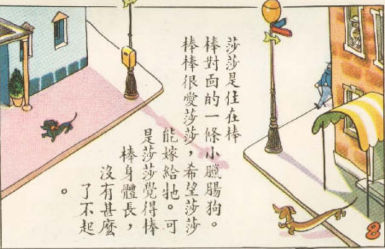 莎莎是住在棒
棒對面的一條小臘腸狗。
棒棒很愛莎莎，希望莎莎
能嫁給牠。可
是莎莎覺得棒
棒身體長，
沒有甚麼
了不起
。
2